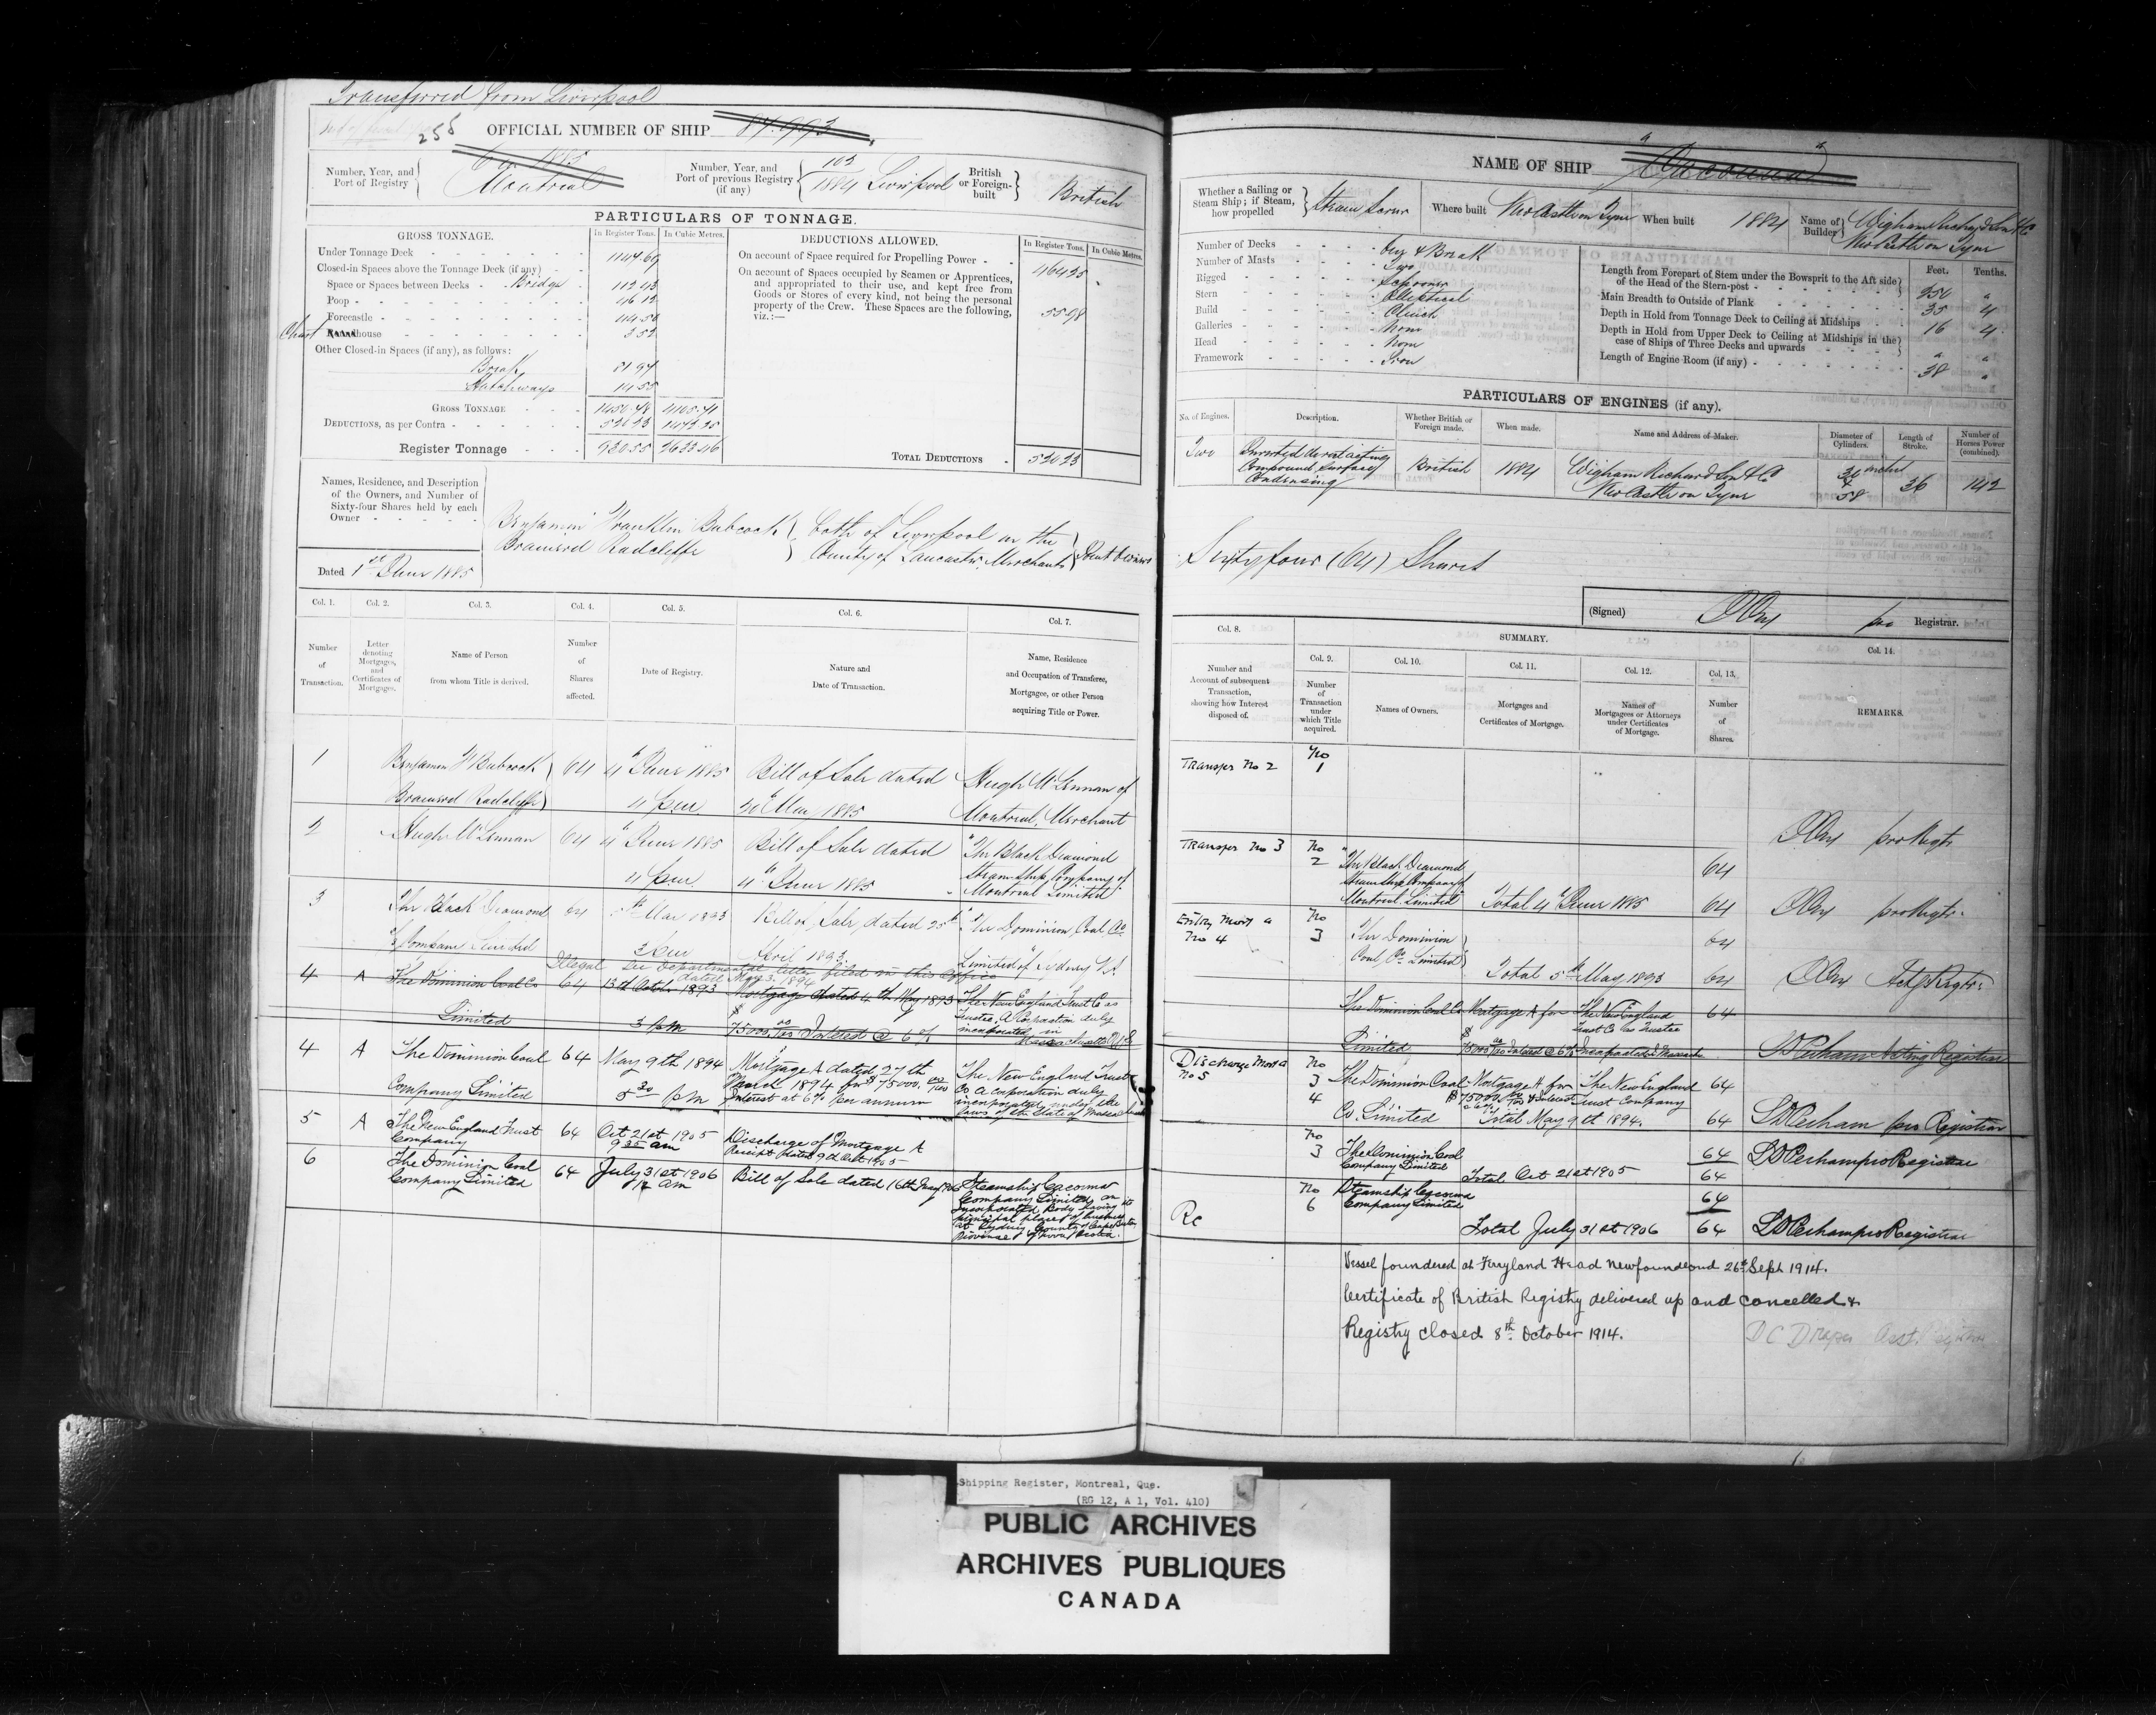 Transferred from Liverpool
255
OFFICIAL NUMBER OF SHIP 84.993
Number, Year, and Port of Registry
1885
Montreal
Number, Year, and Port of previous Registry (if any)
102
1884 Liverpool
British or Foreign-built
British
PARTICULARS OF TONNAGE.
GROSS TONNAGE. In Register Tons. In Cubic Metres.
Under Tonnage Deck 1147.69
Closed-in Spaces above the Tonnage Deck (if any)
Space or Spaces between Decks Bridge
Poop 46.12
Forecastle
Chart house 3.52
Other Closed-in Spaces (if any), as follows:
Break 81.94
Hatchways 14.55
GROSS TONNAGE 1450.78 4105.71
DEDUCTIONS, as per Contra 520.23
Register Tonnage 930.55 2633.46
DEDUCTIONS ALLOWED. In Register Tons. In Cubic Metres.
On account of Space required for Propelling Power 464.25
On account of Spaces occupied by Seamen or Apprentices,
and appropriated to their use, and kept free from
Goods or Stores of every kind, not being the personal
property of the Crew. These Spaces are the following,
viz.:— 55.98
TOTAL DEDUCTIONS 520.23
Names, Residence, and Description
of the Owners, and Number of
Sixty-four Shares held by each
Owner
Dated 1st June 1885
Benjamin Franklin Babcock
Brainerd Radcliffe
both of Liverpool in the
County of Lancaster, Merchants
Joint Owners
Col. 1. Col. 2. Col. 3. Col. 4. Col. 5. Col. 6. Col. 7.
Number of Transaction.
Letter denoting Mortgages, and Certificates of Mortgages.
Name of Person from whom Title is derived.
Number of Shares affected.
Date of Registry.
Nature and Date of Transaction.
Name, Residence and Occupation of Transferee, Mortgagee, or other Person acquiring Title or Power.
1 Benjamin F Babcock 64 4th June 1885 Bill of Sale dated Hugh McLennan of
Brainerd Radcliffe 4 p.m. 20th May 1885 Montreal, Merchant
2 Hugh McLennan 64 4th June 1885 Bill of Sale dated "The Black Diamond
4 p.m. 4th June 1885 Steam Ship Company of
Montreal Limited"
3 The Black Diamond 64 5th May 1893 Bill of Sale dated 25th "The Dominion Coal Co
Company Limited 3 p.m. April 1893 Limited" of Sydney N.S.
Illegal see Departmental letter filed in this Office
dated May 3. 1894
4 A The Dominion Coal Co 64 13th October 1893 Mortgage dated 4th May 1893 The New England Trust Co as
Trustee, A Corporation duly
Limited 3 p.m $75000.00/100 Interest @ 6% incorporated in
Massachusetts U.S
4 A The Dominion Coal 64 May 9th 1894 Mortgage A dated 27th The New England Trust
March 1894 for $75000.00/100 Co A corporation duly
Company Limited 5 30 p.m Interest at 6% per annum incorporated under the
laws of the State of Massachusetts
5 A The New England Trust 64 Oct 21st 1905 Discharge of Mortgage A
Company 9 35 am Receipt dated 9th Oct 1905
6 The Dominion Coal 64 July 31st 1906 Bill of Sale dated 16th May 1906 Steamship Cacouna
Company Limited am Company Limited, an
incorporated Body having its
principal place of business
at Sydney, County of Cape Breton
Province of Nova Scotia.
NAME OF SHIP "Cacouna"
Whether a Sailing or Steam Ship; if Steam, how propelled
Steam Screw
Where built Newcastle on Tyne When built 1884 Name of Builder Wigham Richardson & Co
Newcastle on Tyne
Number of Decks One & Break
Number of Masts Two
Rigged Schooner
Stern Elliptical
Build Clinch
Galleries None
Head None
Framework Iron
Feet. Tenths.
Length from Forepart of Stem under the Bowsprit to the Aft side of the Head of the Stern-post 250 "
Main Breadth to Outside of Plank 35 4
Depth in Hold from Tonnage Deck to Ceiling at Midships 16 4
Depth in Hold from Upper Deck to Ceiling at Midships in the case of Ships of Three Decks and upwards " "
Length of Engine Room (if any) 38 "
PARTICULARS OF ENGINES (if any).
No. of Engines. Description. Whether British or Foreign made. When made. Name and Address of Maker. Diameter of Cylinders. Length of Stroke. Number of Horses Power (combined).
Two Inverted direct acting British 1884 Wigham Richardson & Co inches 36 142
Compound Surface Newcastle on Tyne 58
Condensing
Sixty four (64) Shares
(Signed) Registrar.
Col. 8. SUMMARY. Col. 14.
Col. 9. Col. 10. Col. 11. Col. 12. Col. 13.
Number and Account of subsequent Transaction, showing how Interest disposed of.
Number of Transaction under which Title acquired.
Names of Owners.
Mortgages and Certificates of Mortgage.
Names of Mortgagees or Attorneys under Certificates of Mortgage.
Number of Shares.
REMARKS.
Transfer No 2 No 1
pro Regtr
Transfer No 3 No 2 "The Black Diamond 64
Steam Ship Company of
Montreal. Limited" Total 4th June 1885 64 pro Regtr.
Entry Mort A No 4 No 3 The Dominion 64
Coal Co Limited Total 5th May 1893 64 Actg Regtr.
The Dominion Coal Co Mortgage A for The New England 64
Trust Co as Trustee
Limited $75000.00/100 Interest @ 6% Incorporated Massach. Pecham Acting Registrar
Discharge Mort A No 5 No 3 The Dominion Coal Mortgage A for The New England 64
4 Co. Limited $75000.00/100 & Interest Trust Company
Total May 9th 1894. 64 Pecham pro Registrar
No 3 The Dominion Coal 64 Pecham pro Registrar
Company Limited Total Oct 21st 1905 64
No 6 Steamship Cacouna 64
Company Limited
Rc Total July 31st 1906 64 Pecham pro Registrar
Vessel foundered at Ferryland Head Newfoundland 26th Sept 1914.
Certificate of British Registry delivered up and cancelled &
Registry closed 8th October 1914. D C Draper Asst. Registrar
Shipping Register, Montreal, Que.
(RG 12, A 1, Vol. 410)
PUBLIC ARCHIVES
ARCHIVES PUBLIQUES
CANADA